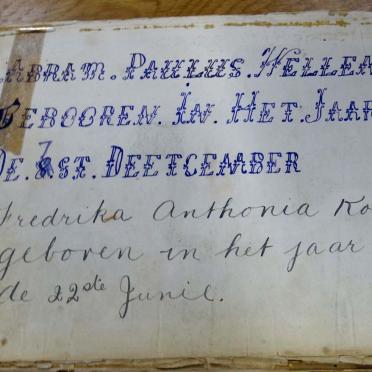 ABRAM. PAULUS. WELLEM
GEBOOREN. IN. HET. JAAR
DE. 7ST. DEETCEMBER
Fredrika Anthonia Ko
geboren in het jaar
de 22ste Junie.